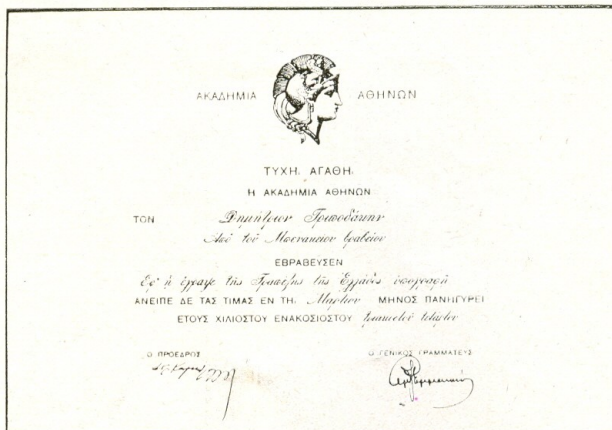 ΑΚΑΔΗΜΙΑ ΑΘΗΝΩΝ
ΤΥΧΗΙ ΑΓΑΘΗΙ
Η ΑΚΑΔΗΜΙΑ ΑΘΗΝΩΝ
ΤΟΝ Δημήτριον Γριποδάκην
Από του Μπενακείου βραβείου
ΕΒΡΑΒΕΥΣΕΝ
Εφ' ή έγραψε της Τραπέζης της Ελλάδος υπογραφή
ΑΝΕΙΠΕ ΔΕ ΤΑΣ ΤΙΜΑΣ ΕΝ ΤΗΙ Μαρτίου ΜΗΝΟΣ ΠΑΝΗΓΥΡΕΙ
ΕΤΟΥΣ ΧΙΛΙΟΣΤΟΥ ΕΝΑΚΟΣΙΟΣΤΟΥ τριακοστού
Ο ΠΡΟΕΔΡΟΣ Ο ΓΕΝΙΚΟΣ ΓΡΑΜΜΑΤΕΥΣ